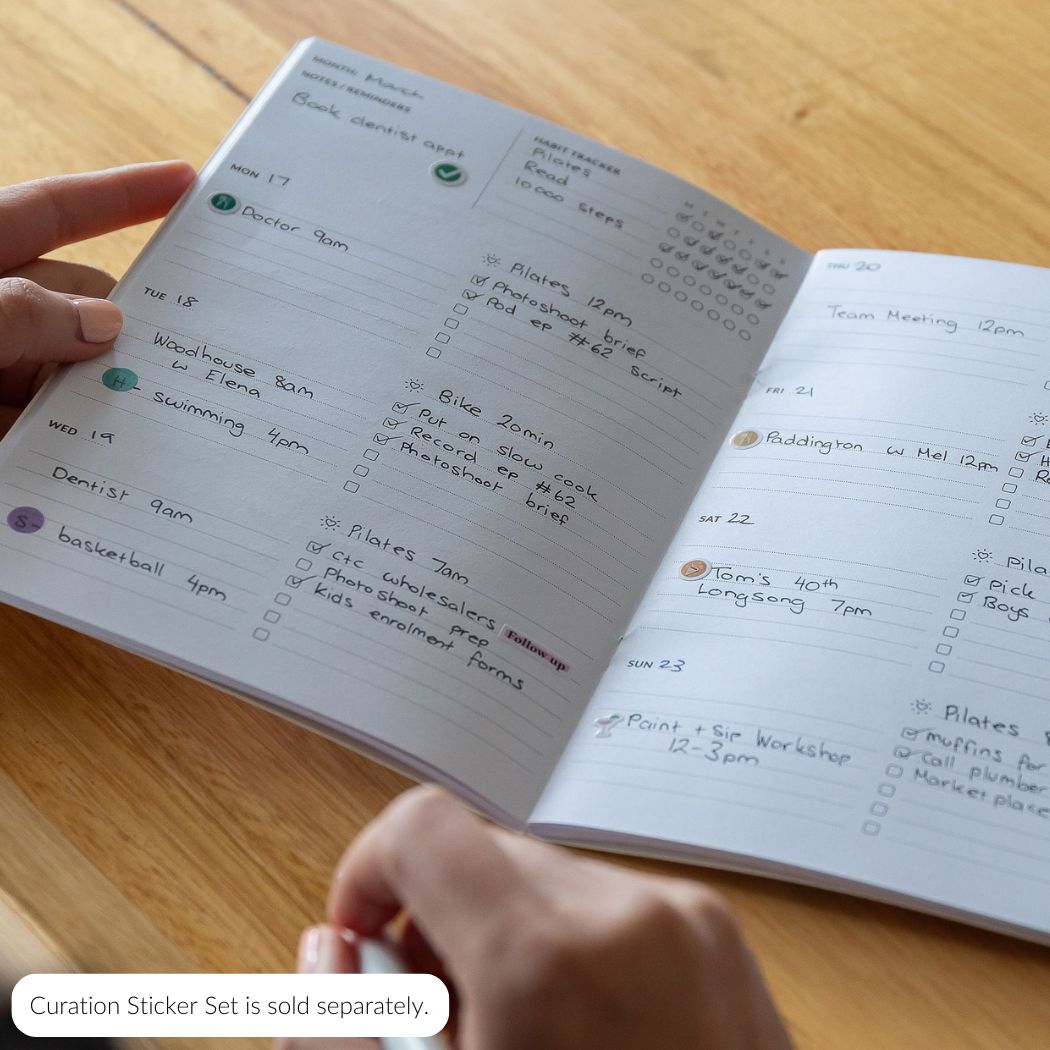 MONTH: March
NOTES / REMINDERS
Book dentist appt
HABIT TRACKER
Pilates
Read
10 000 steps
M T W T F S S
MON 17
Doctor 9am
Pilates 12pm
Photoshoot brief
Pod ep #62 script
TUE 18
Woodhouse 8am
w Elena
H
swimming 4pm
Bike 20min
Put on slow cook
Record ep #62
Photoshoot brief
WED 19
Dentist 9am
S
basketball 4pm
Pilates 7am
Ctc wholesalers
Photoshoot prep Follow up
kids enrolment forms
THU 20
Team Meeting 12pm
FRI 21
Paddington w Mel 12pm
SAT 22
Tom's 40th
Longsong 7pm
Pick
Boys
SUN 23
Paint + Sip Workshop
12-3pm
Pilates
muffins for
Call plumber
Market place
Curation Sticker Set is sold separately.